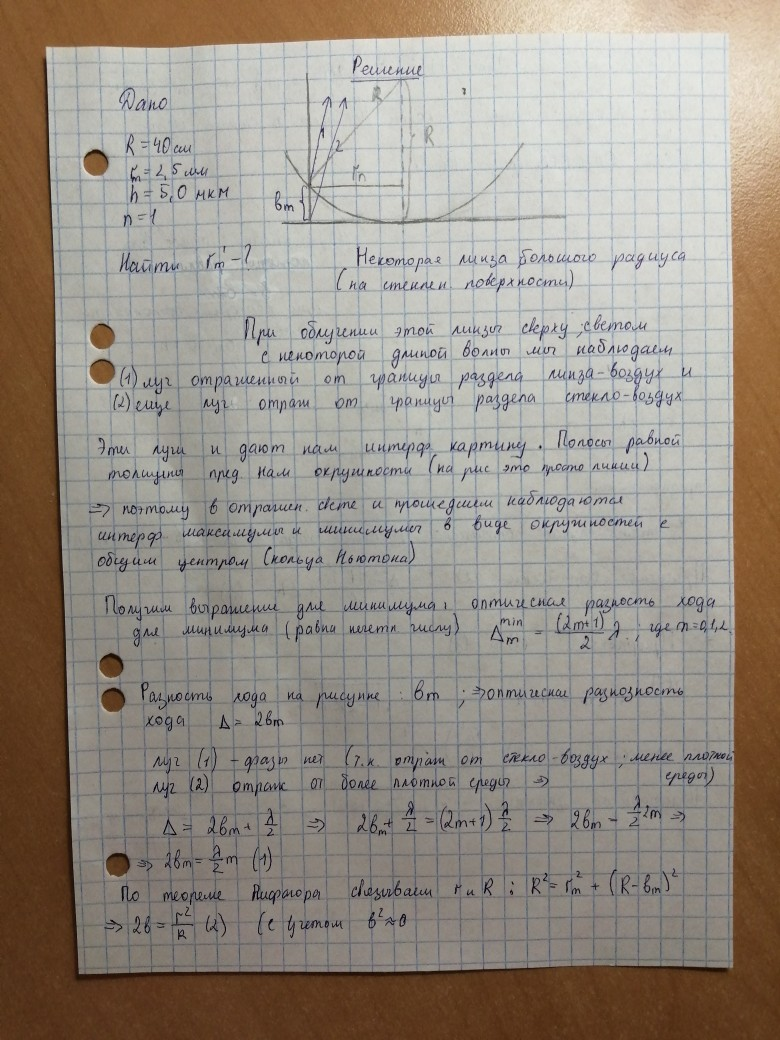 Решение
Дано
R
1
2
R
rn
bm
R = 40 см
rm = 2,5 мм
h = 5,0 мкм
n = 1
Найти rm' - ?
Некоторая линза большого радиуса
(на стеклен поверхности)
При облучении этой линзы сверху ; светом
с некоторой длиной волны мы наблюдаем
(1) луг отраженный от границы раздела линза-воздух и
(2) еще луг отраж от границы раздела стекло-воздух
Эти луги и дают нам интерф картину. Полосы равной
толщины пред нам окружности (на рис это просто линии)
⇒ поэтому в отражен. свете и прошедшем наблюдаются
интерф максимумы и минимумы в виде окружностей с
общим центром (кольца Ньютона)
Получим выражение для минимума: оптическая разность хода
для минимума (равна нечетн. числу) Δ_m^min = (2m+1)/2 λ ; где n=0,1,2.
Разность хода на рисунке : bm ; ⇒ оптическое
хода Δ = 2bm
луг (1) - фазы нет (т.к. отраж от стекло-воздух ; менее плотной
среды)
луг (2) отраж от более плотной среды ⇒
Δ = 2bm + λ/2 ⇒ 2bm + λ/2 = (2m+1) λ/2 ⇒ 2bm - λ/2 2m ⇒
⇒ 2bm = λ/2 m (1)
По теореме Пифагора связываем r и R : R² = rm² + (R-bm)²
⇒ 2b = r²/R (2) (с учетом b² ≈ 0